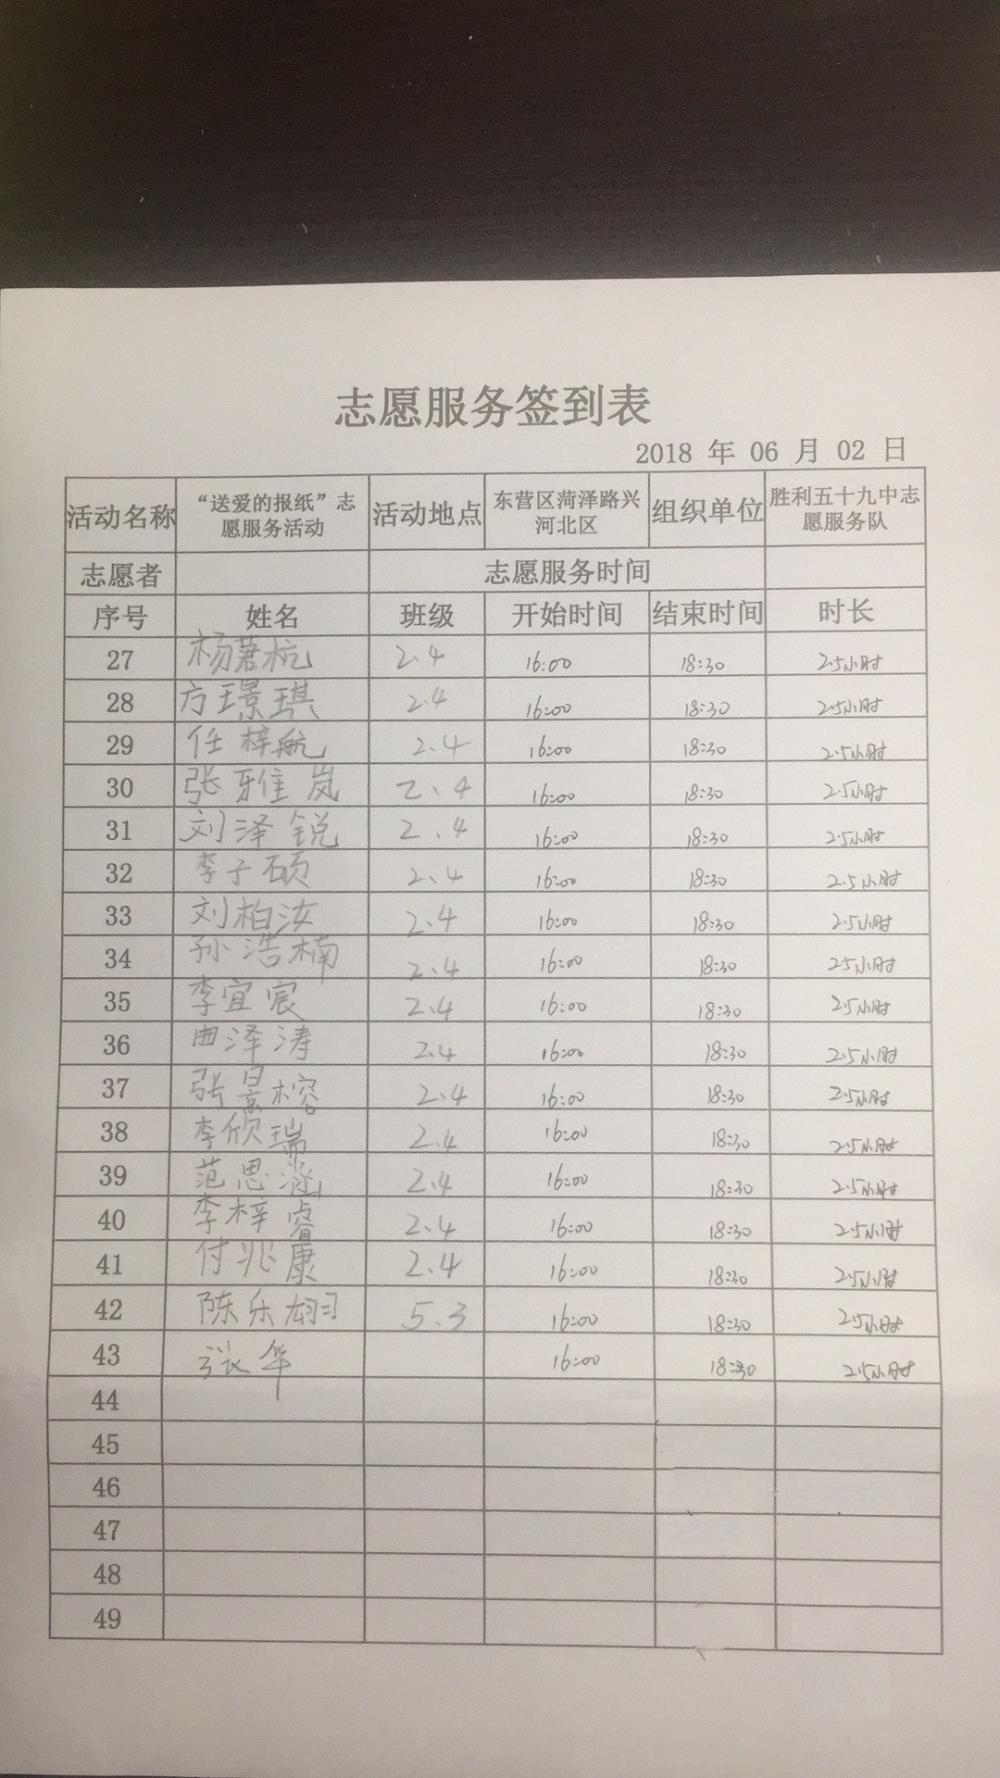 志愿服务签到表
2018 年 06 月 02 日
活动名称 “送爱的报纸”志愿服务活动 活动地点 东营区菏泽路兴河北区 组织单位 胜利五十九中志愿服务队
志愿者 志愿服务时间
序号 姓名 班级 开始时间 结束时间 时长
27 杨萧杭 2.4 16:00 18:30 2.5小时
28 方璟琪 2.4 16:00 18:30 2.5小时
29 任梓航 2.4 16:00 18:30 2.5小时
30 张雅岚 2.4 16:00 18:30 2.5小时
31 刘泽锐 2.4 16:00 18:30 2.5小时
32 李子硕 2.4 16:00 18:30 2.5小时
33 刘柏汝 2.4 16:00 18:30 2.5小时
34 孙浩楠 2.4 16:00 18:30 2.5小时
35 李宜宸 2.4 16:00 18:30 2.5小时
36 曲泽涛 2.4 16:00 18:30 2.5小时
37 张景榕 2.4 16:00 18:30 2.5小时
38 李欣瑞 2.4 16:00 18:30 2.5小时
39 范思涵 2.4 16:00 18:30 2.5小时
40 李梓睿 2.4 16:00 18:30 2.5小时
41 付兆康 2.4 16:00 18:30 2.5小时
42 陈乐翃 5.3 16:00 18:30 2.5小时
43 张华 16:00 18:30 2.5小时
44
45
46
47
48
49